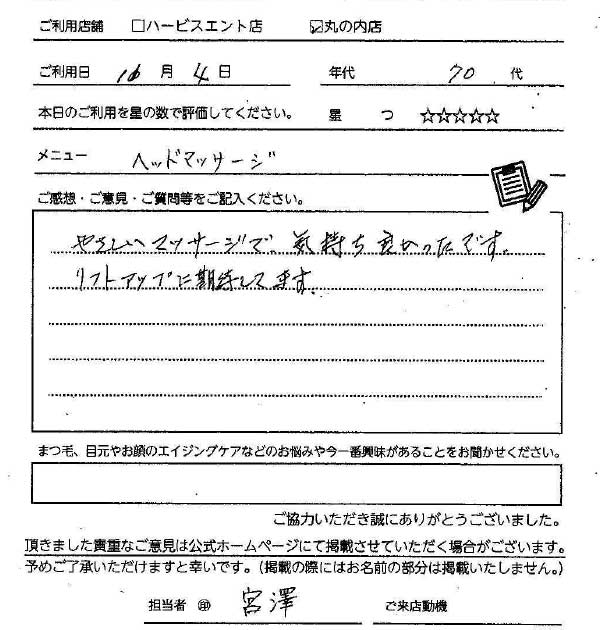 ご利用店舗 □ハービスエント店 ☑丸の内店
ご利用日 10 月 4 日 年代 70 代
本日のご利用を星の数で評価してください。 星 つ ☆☆☆☆☆
メニュー ヘッドマッサージ
ご感想・ご意見・ご質問等をご記入ください。
やさしいマッサージで、気持ち良かったです。
リフトアップに期待してます。
まつ毛、目元やお顔のエイジングケアなどのお悩みや今一番興味があることをお聞かせください。
ご協力いただき誠にありがとうございました。
頂きました貴重なご意見は公式ホームページにて掲載させていただく場合がございます。
予めご了承いただけますと幸いです。（掲載の際にはお名前の部分は掲載いたしません。）
担当者 ㊞ 宮澤 ご来店動機